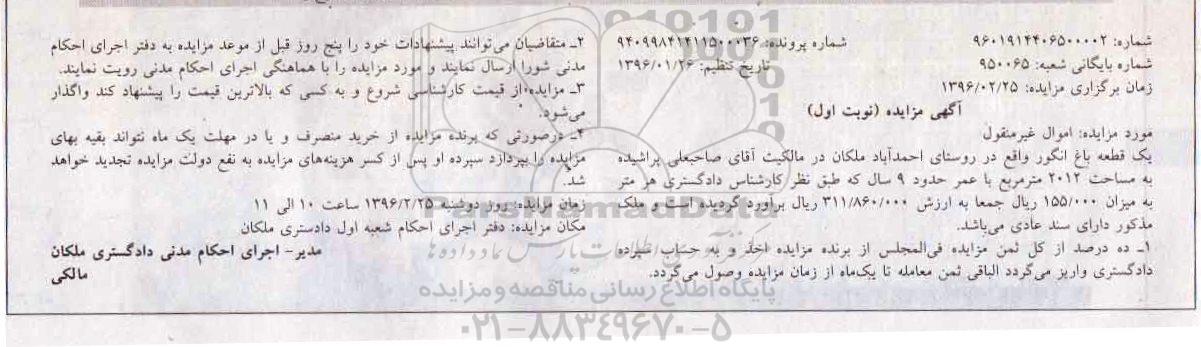 شماره: ۹۶۰۱۹۱۴۴۰۶۵۰۰۰۰۲
شماره پرونده: ۹۴۰۹۹۸۴۱۴۱۱۵۰۰۰۳۶
شماره بایگانی شعبه: ۹۵۰۰۶۵
تاریخ تنظیم: ۱۳۹۶/۰۱/۲۶
زمان برگزاری مزایده: ۱۳۹۶/۰۲/۲۵
آگهی مزایده (نوبت اول)
مورد مزایده: اموال غیرمنقول
یک قطعه باغ انگور واقع در روستای احمدآباد ملکان در مالکیت آقای صاحبعلی پراشیده
به مساحت ۲۰۱۲ مترمربع با عمر حدود ۹ سال که طبق نظر کارشناس دادگستری هر متر
به میزان ۱۵۵/۰۰۰ ریال جمعا به ارزش ۳۱۱/۸۶۰/۰۰۰ ریال برآورد گردیده است و ملک
مذکور دارای سند عادی می‌باشد.
۱ـ ده درصد از کل ثمن مزایده فی‌المجلس از برنده مزایده اخذ و به حساب سپرده
دادگستری واریز می‌گردد الباقی ثمن معامله تا یک‌ماه از زمان مزایده وصول می‌گردد.
۲ـ متقاضیان می‌توانند پیشنهادات خود را پنج روز قبل از موعد مزایده به دفتر اجرای احکام
مدنی شورا ارسال نمایند و مورد مزایده را با هماهنگی اجرای احکام مدنی رویت نمایند.
۳ـ مزایده از قیمت کارشناسی شروع و به کسی که بالاترین قیمت را پیشنهاد کند واگذار
می‌شود.
۴ـ درصورتی که برنده مزایده از خرید منصرف و یا در مهلت یک ماه نتواند بقیه بهای
مزایده را بپردازد سپرده او پس از کسر هزینه‌های مزایده به نفع دولت مزایده تجدید خواهد
شد.
زمان مزایده: روز دوشنبه ۱۳۹۶/۲/۲۵ ساعت ۱۰ الی ۱۱
مکان مزایده: دفتر اجرای احکام شعبه اول دادستری ملکان
مدیر- اجرای احکام مدنی دادگستری ملکان
مالکی
ParsNamadData
پایگاه اطلاع رسانی مناقصه و مزایده
۰۲۱-۸۸۳۴۹۶۷۰-۵